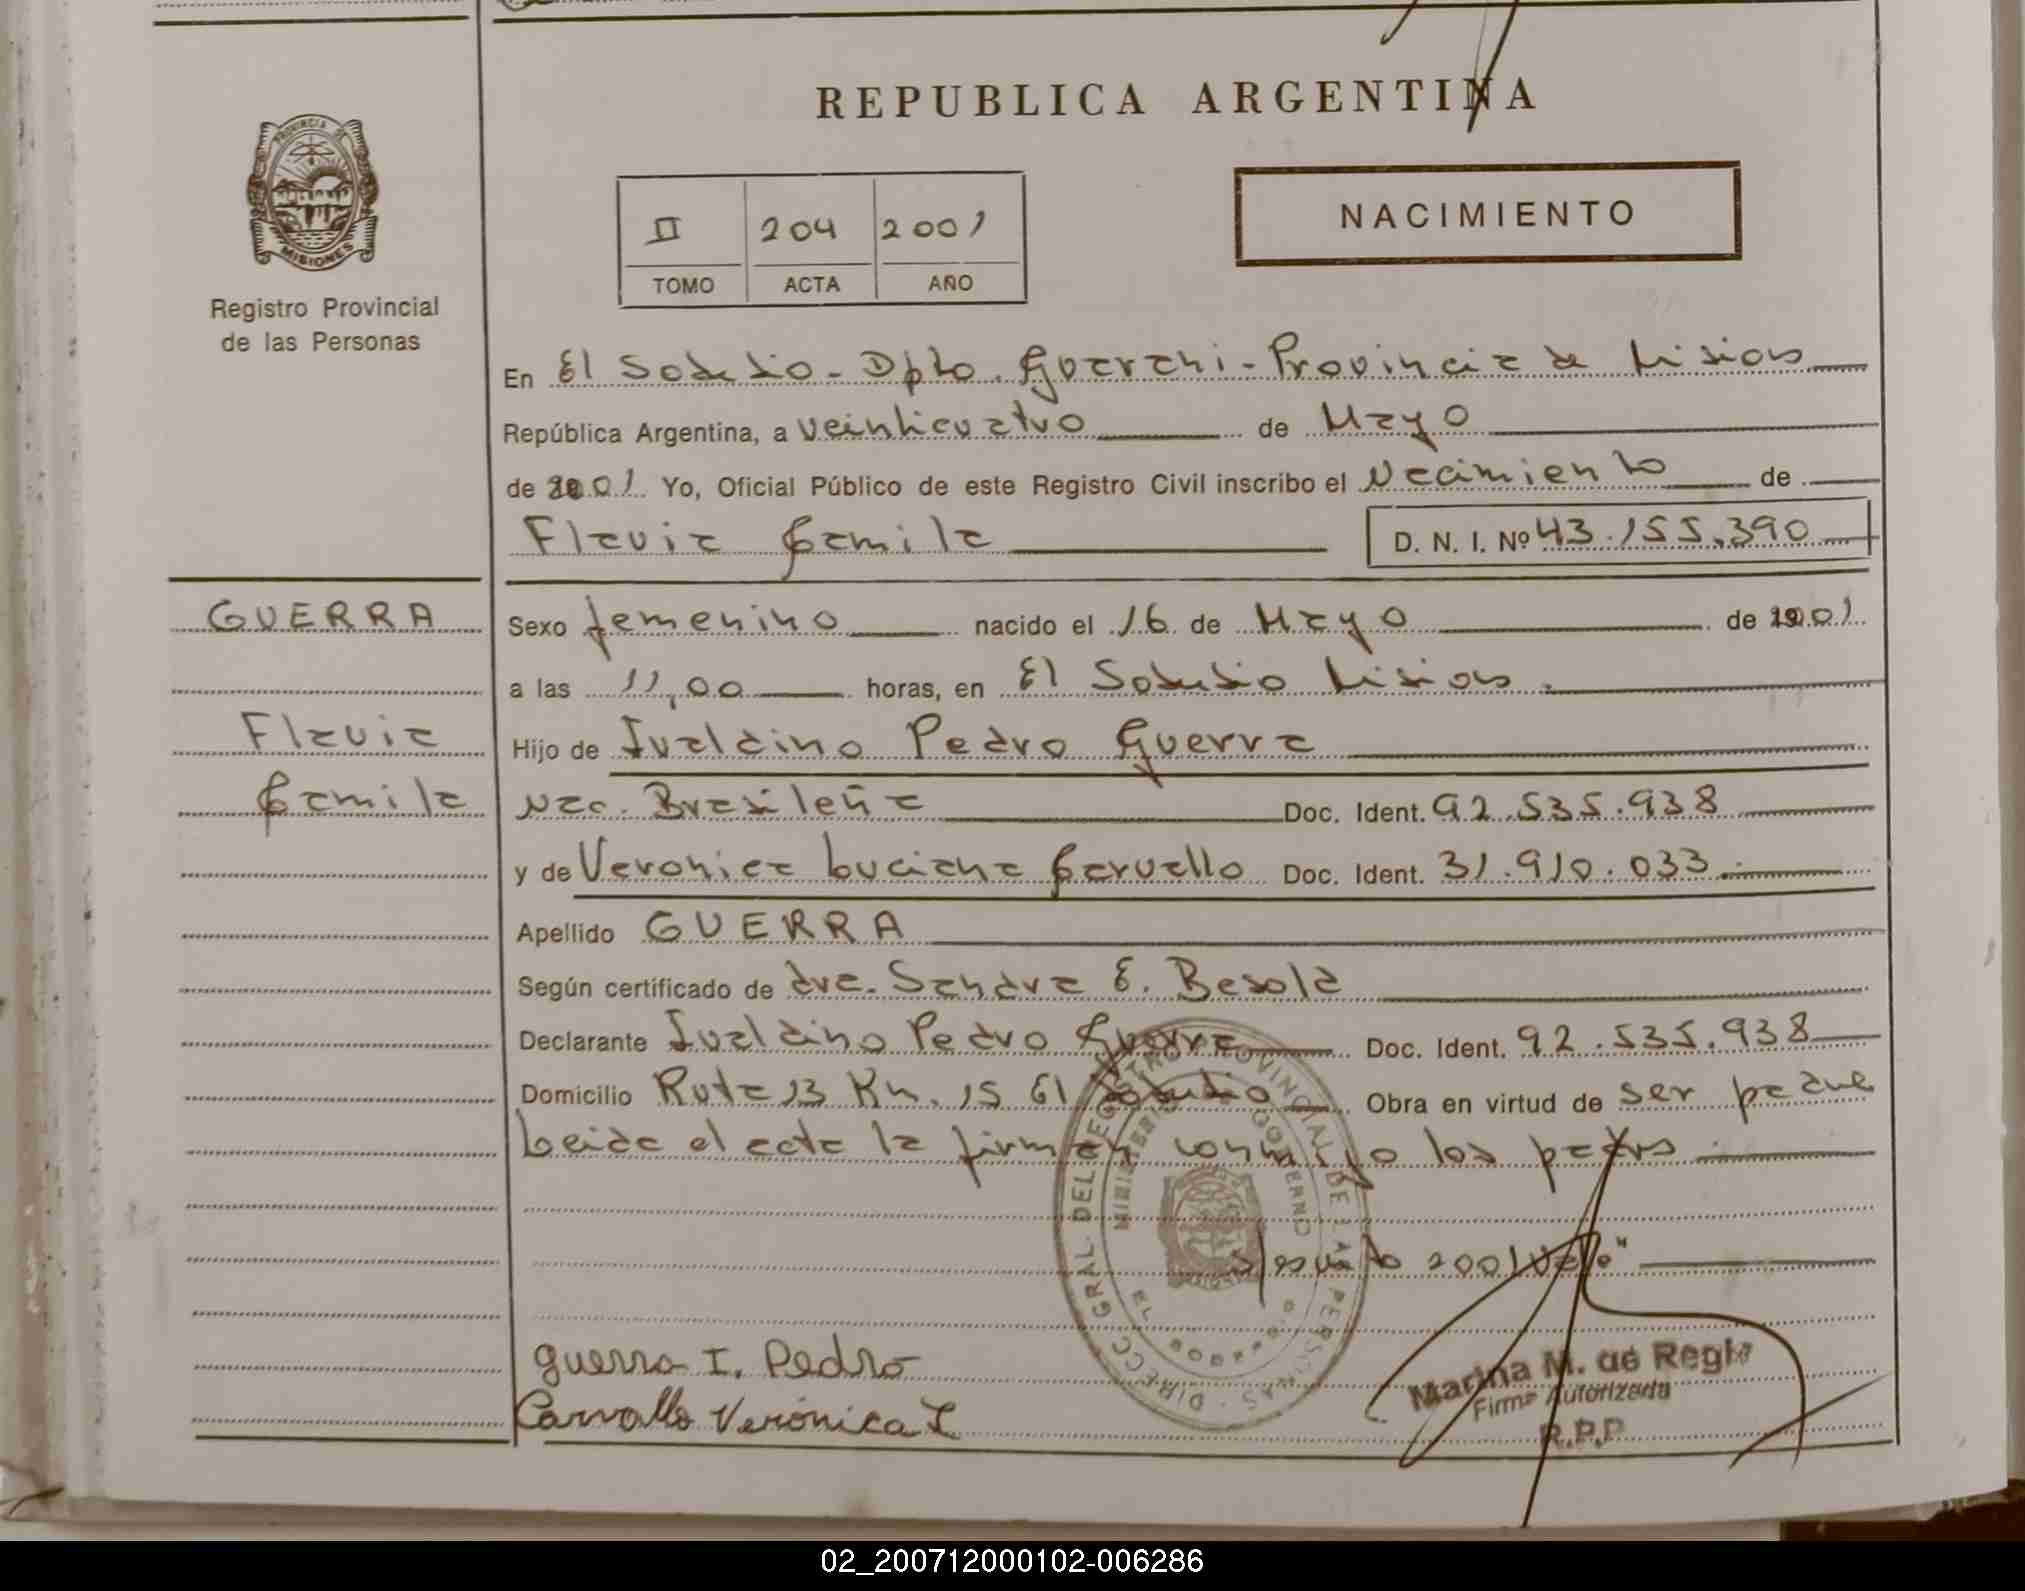 REPUBLICA ARGENTINA
PROVINCIA DE
MISIONES
Registro Provincial
de las Personas
II 204 2001
TOMO ACTA AÑO
NACIMIENTO
En El Soberbio - Dpto. Guarani - Provincia de Misiones
República Argentina, a veinticuatro de Mayo
de 2001 Yo, Oficial Público de este Registro Civil inscribo el Nacimiento de
Flavia Camila D. N. I. Nº 43.155.390
GUERRA
Flavia
Camila
Sexo femenino nacido el 16 de Mayo de 2001
a las 11,00 horas, en El Soberbio Misiones.
Hijo de Ivaldino Pedro Guerra
Nac. Brasileña Doc. Ident. 92.535.938
y de Veronica Luciana Carvallo Doc. Ident. 31.910.033.
Apellido GUERRA
Según certificado de dra. Sandra E. Besold
Declarante Ivaldino Pedro Guerra Doc. Ident. 92.535.938
Domicilio Ruta 13 Km. 15 El Soberbio Obra en virtud de ser padre
Leida el acta la firman conmigo los padres
2001 Vale"
Guerra I. Pedro
Carvallo Verónica L
DIRECC. GRAL. DEL REGISTRO PROVINCIAL DE LAS PERSONAS
MINISTERIO GOBIERNO
EL SOBERBIO
Marina M. de Regla
Firma Autorizada
R.P.P
02_200712000102-006286